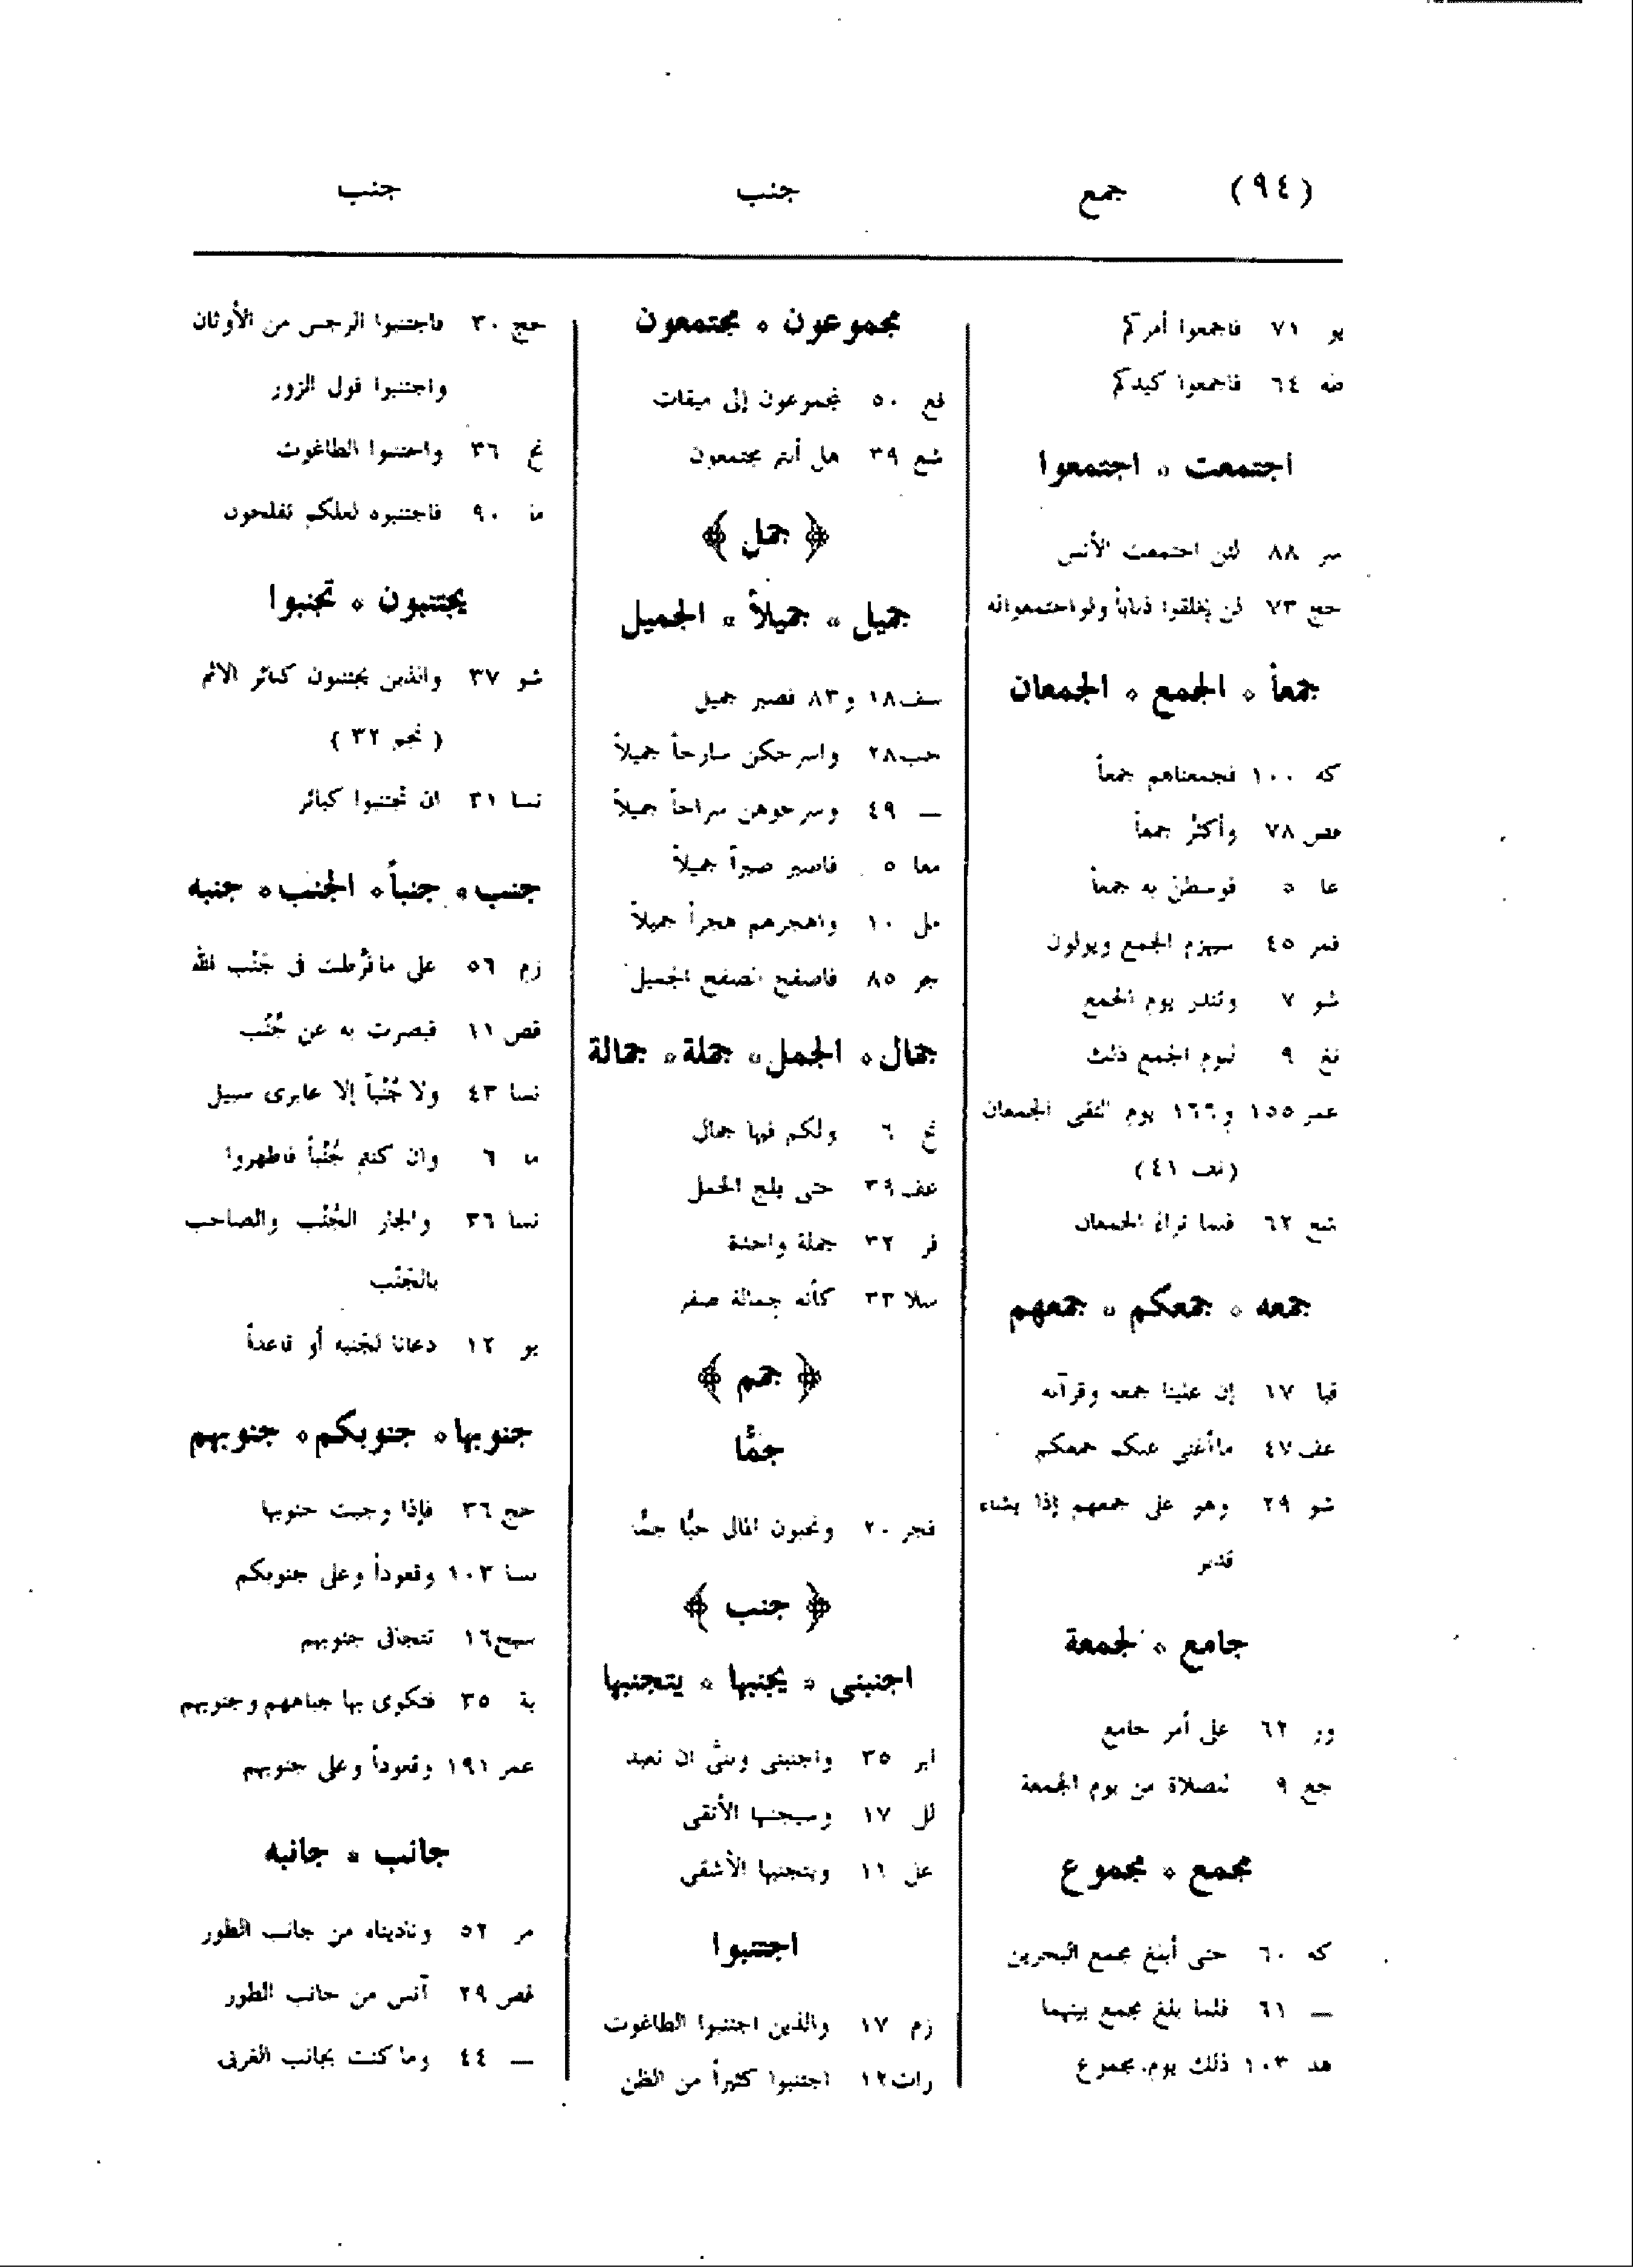 (٩٤) جمع جنب جنب
يو ٧١ فاجمعوا أمركم
طه ٦٤ فاجمعوا كيدكم
اجتمعت * اجتمعوا
سر ٨٨ لئن اجتمعت الأنس
حج ٧٣ لن يخلقوا ذباباً ولو اجتمعوا له
جمعاً * الجمع * الجمعان
كه ١٠٠ فجمعناهم جمعاً
قص ٧٨ وأكثر جمعاً
عا ٥ فوسطن به جمعاً
قمر ٤٥ سيهزم الجمع ويولون
شو ٧ وتنذر يوم الجمع
تغ ٩ ليوم الجمع ذلك
عمر ١٥٥ و١٦٦ يوم التقى الجمعان
(نف ٤١)
شع ٦٢ فلما تراءَ الجمعان
جمعه * جمعكم * جمعهم
قيا ١٧ إن علينا جمعه وقرآنه
عف ٤٧ ما أغنى عنكم جمعكم
شو ٢٩ وهو على جمعهم إذا يشاء
قدير
جامع * لجمعة
ور ٦٢ على أمر جامع
جع ٩ للصلاة من يوم الجمعة
مجمع * مجموع
كه ٦٠ حتى أبلغ مجمع البحرين
— ٦١ فلما بلغ مجمع بينهما
هد ١٠٣ ذلك يوم مجموع
مجموعون * مجتمعون
قع ٥٠ لمجموعون إلى ميقات
شع ٣٩ هل أنتم مجتمعون
﴿ جمل ﴾
جميل * جميلاً * الجميل
سف ١٨ و ٨٣ فصبر جميل
حب ٢٨ واسرحكن سارحاً جميلاً
— ٤٩ وسرحوهن سراحاً جميلاً
معا ٥ فاصبر صبراً جميلاً
مل ١٠ واهجرهم هجراً جميلاً
جر ٨٥ فاصفح الصفح الجميل
جمال * الجمل * جملة * جمالة
نح ٦ ولكم فيها جمال
عف ٣٩ حتى يلج الجمل
فر ٣٢ جملة واحدة
سلا ٣٣ كأنه جمالة صفر
﴿ جمم ﴾
جمًّا
فجر ٢٠ وتحبون المال حبًّا جمًّا
﴿ جنب ﴾
اجنبنى * يجنبها * يتجنبها
ابر ٣٥ واجنبنى وبنىَّ ان نعبد
لل ١٧ وسيجنبها الأتقى
عل ١١ ويتجنبها الأشقى
اجتنبوا
زم ١٧ والذين اجتنبوا الطاغوت
رات ١٢ اجتنبوا كثيراً من الظن
حج ٣٠ فاجتنبوا الرجس من الأوثان
واجتنبوا قول الزور
نح ٣٦ واجتنبوا الطاغوت
ما ٩٠ فاجتنبوه لعلكم تفلحون
يجتنبون * تجنبوا
شو ٣٧ والذين يجتنبون كبائر الاثم
( نجم ٣٢ )
نسا ٣١ ان تجتنبوا كبائر
جنب * جنباً * الجنب * جنبه
زم ٥٦ على ما فرَّطت فى جَنْب الله
قص ١١ فبصرت به عن جُنُب
نسا ٤٣ ولا جُنُباً إلا عابرى سبيل
ما ٦ وان كنتم جُنُباً فاطهروا
نسا ٣٦ والجار الجُنُب والصاحب
بالجَنْب
يو ١٢ دعانا لجَنبه أو قاعداً
جنوبها * جنوبكم * جنوبهم
حج ٣٦ فإذا وجبت جنوبها
نسا ١٠٣ وقعوداً وعلى جنوبكم
سجع ١٦ تتجافى جنوبهم
بة ٣٥ فتكوى بها جباههم وجنوبهم
عمر ١٩١ وقعوداً وعلى جنوبهم
جانب * جانبه
مر ٥٢ وناديناه من جانب الطور
قص ٢٩ آنس من جانب الطور
— ٤٤ وما كنت بجانب الغربى